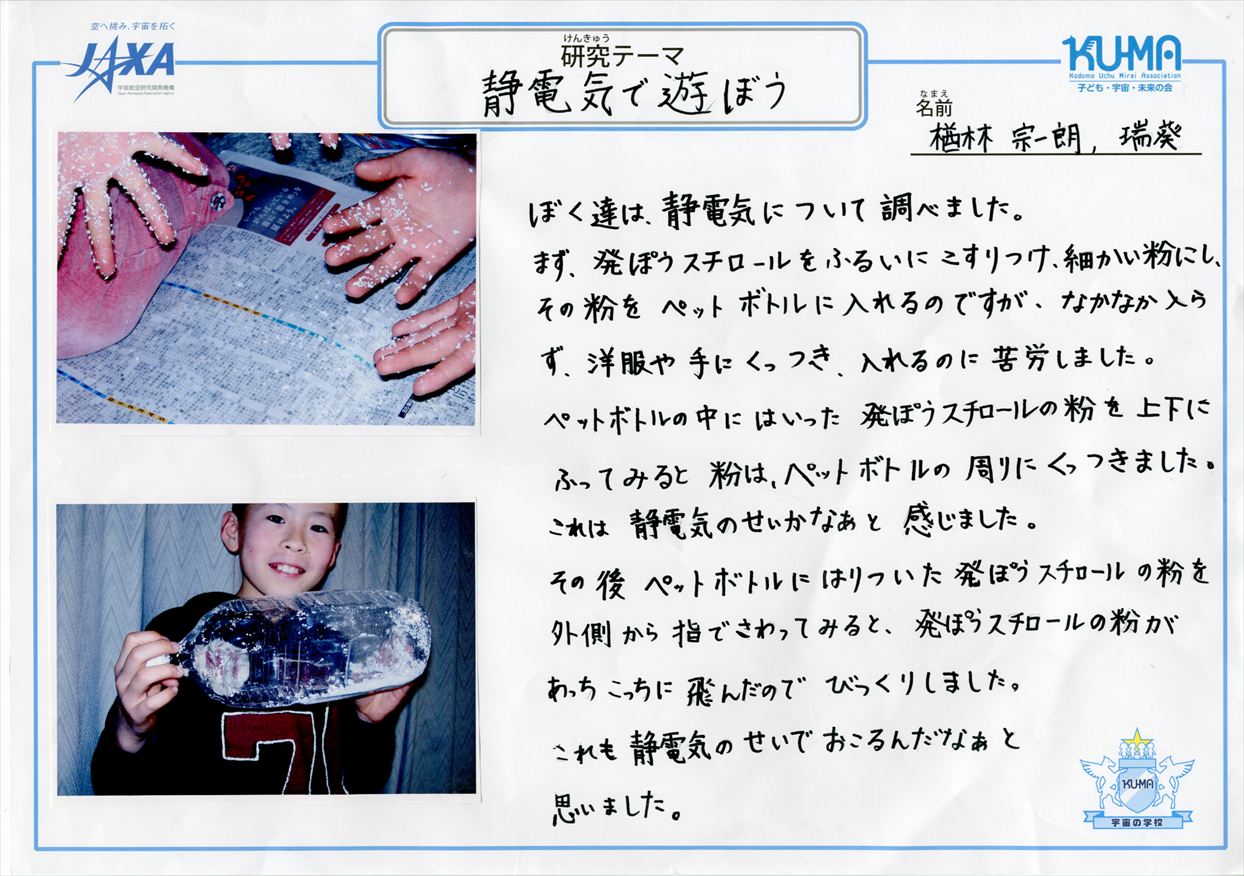 空へ挑み、宇宙を拓く
JAXA
宇宙航空研究開発機構
Japan Aerospace Exploration Agency
けんきゅう
研究テーマ
静電気で遊ぼう
KU-MA
Kodomo Uchu Mirai Association
子ども・宇宙・未来の会
なまえ
名前
楢林 宗一朗, 瑞葵
ぼく達は、静電気について調べました。
まず、発ぽうスチロールをふるいにこすりつけ、細かい粉にし、
その粉をペットボトルに入れるのですが、なかなか入ら
ず、洋服や手にくっつき、入れるのに苦労しました。
ペットボトルの中にはいった発ぽうスチロールの粉を上下に
ふってみると粉は、ペットボトルの周りにくっつきました。
これは静電気のせいかなぁと感じました。
その後ペットボトルにはりついた発ぽうスチロールの粉を
外側から指でさわってみると、発ぽうスチロールの粉が
あっちこっちに飛んだのでびっくりしました。
これも静電気のせいでおこるんだなぁと
思いました。
KU-MA
宇宙の学校